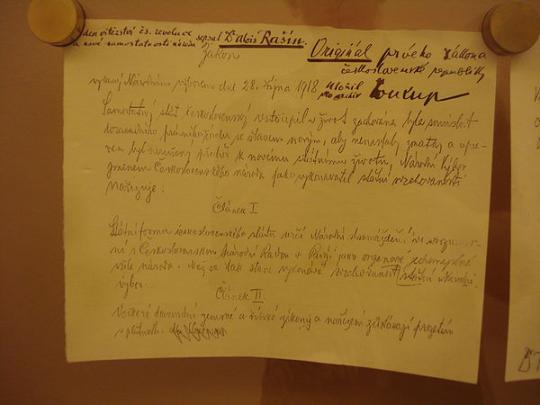 den vítězství čs. revoluce sepsal Dr Alois Rašín. Originál prvého zákona
a nové samostatnosti národa
Zákon československé republiky
vydaný Národním výborem dne 28. října 1918 uložil
pro archiv Soukup
Samostatný stát československý vstoupil v život. zachována byla souvislost
dosavadního právního řádu se stavem novým, aby nenastaly zmatky a upra-
ven byl nerušený přechod k novému státnímu životu, Národní Výbor
jménem Československého národa jako vykonavatel státní svrchovanosti
nařizuje:
Článek I
Státní formu československého státu určí Národní shromáždění ve
ní s Československou Národní Radou v Paříži jako orgánové
vůle národa. Než se tak stane vykonává svrchovanost státní Národní
výbor.
Článek II
Veškeré dosavadní zemské a říšské zákony a nařízení zůstávají prozatím
v platnosti